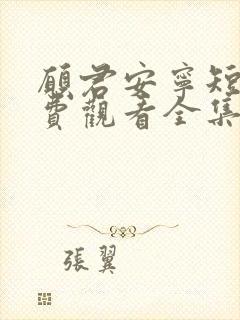 願君安寧短
費觀看全集
張翼